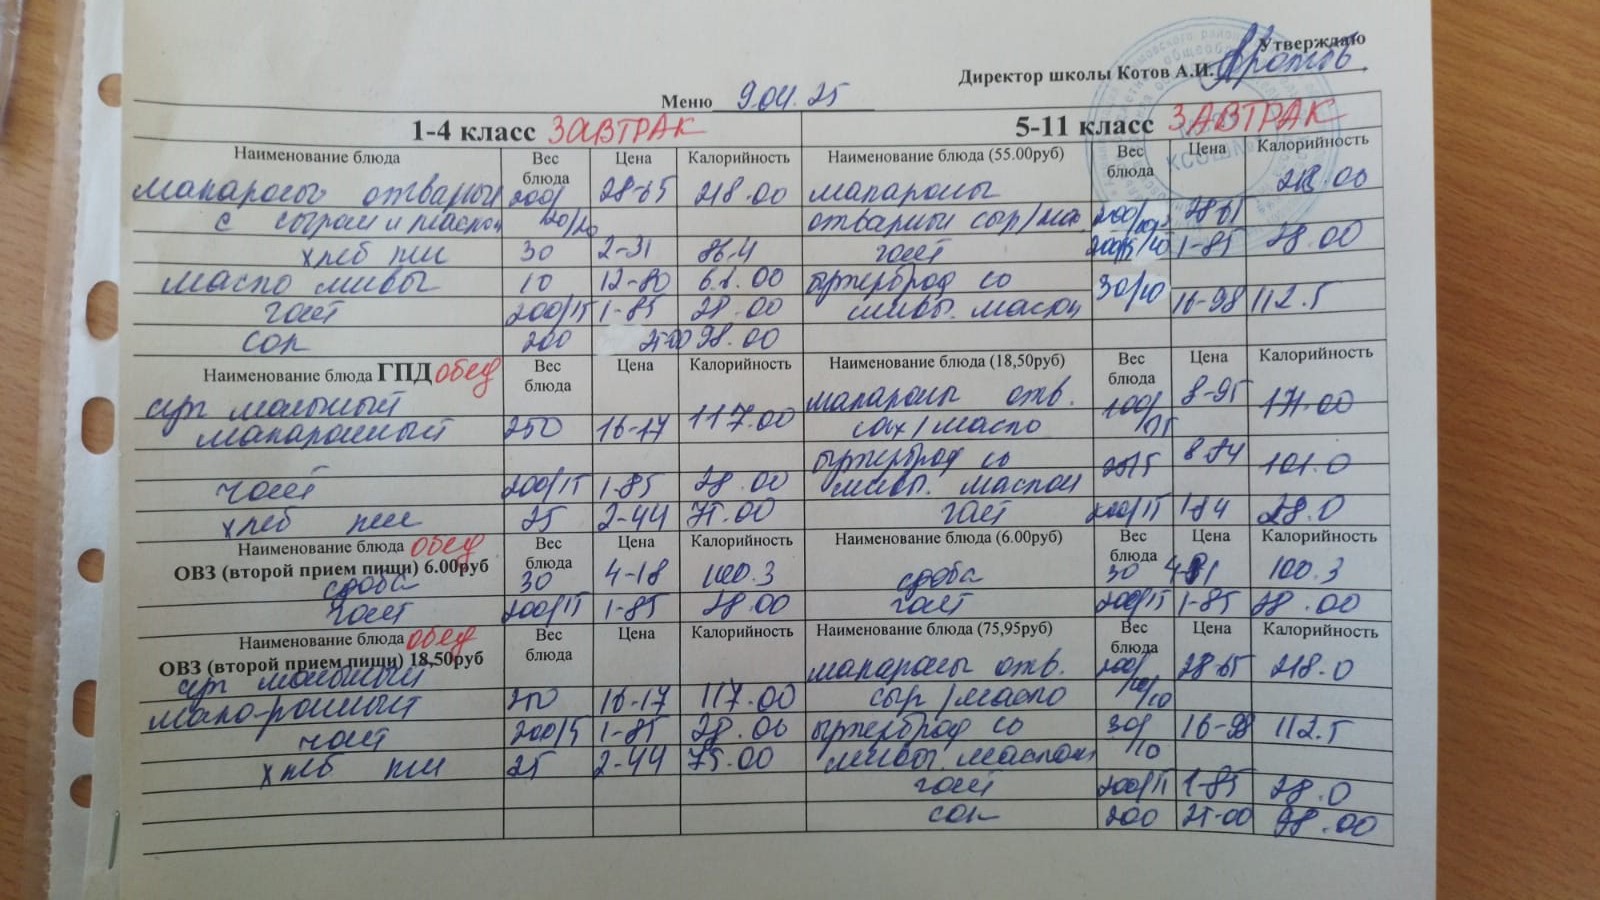 Утверждаю
Директор школы Котов А.И.
Меню 9.04.25
1-4 класс ЗАВТРАК
5-11 класс ЗАВТРАК
Наименование блюда Вес блюда Цена Калорийность
Наименование блюда (55.00руб) Вес блюда Цена Калорийность
макароны отварные 200/ 28-65 218.00
макароны 218.00
с сыром и маслом 20/20
отварныи сыр/мас. 200/ 28-61
хлеб пш 30 2-31 86.4
чай 1-85 28.00
масло сливы 10 12-80 61.00
бутерброд со 30/10
чай 200/15 1-85 28.00
сливы. маслом 16-98 112.5
сок 200 25-00 98.00
Наименование блюда ГПД обед Вес блюда Цена Калорийность
Наименование блюда (18,50руб) Вес блюда Цена Калорийность
суп молочный
макароны отв. 100/ 8-95 171.00
макаронный 250 16-17 117.00
сах/масло /15
бутерброд со 8-84 101.0
чай 200/15 1-85 28.00
сливы. маслом
хлеб пш 25 2-44 75.00
чай 200/15 1-84 28.0
Наименование блюда обед Вес блюда Цена Калорийность
ОВЗ (второй прием пищи) 6.00руб
Наименование блюда (6.00руб) Вес блюда Цена Калорийность
сдоба 30 4-18 100.3
сдоба 30 100.3
чай 200/15 1-85 28.00
чай 200/15 1-85 28.00
Наименование блюда обед Вес блюда Цена Калорийность
ОВЗ (второй прием пищи) 18,50руб
Наименование блюда (75,95руб) Вес блюда Цена Калорийность
суп молочный
макароны отв. 200/ 28-65 218.0
мака-ронный 250 16-17 117.00
сыр/масло /10
чай 200/15 1-85 28.00
бутерброд со 30/ 16-98 112.5
хлеб пш 25 2-44 75.00
сливы. маслом /10
чай 200/15 1-85 28.0
сок 200 25-00 98.00